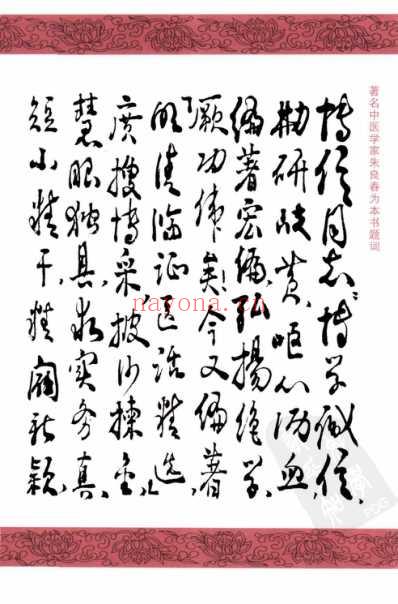 著名中医学家朱良春为本书题词
博信同志,博学诚信,
勤研歧黄,呕心沥血,
编著宏编,弘扬绝学,
厥功伟矣!今又编著
《明清临证医话精选》,
广搜博采,披沙拣金,
慧眼独具,求实务真,
短小精干,精阐新颖,
nayona.cn